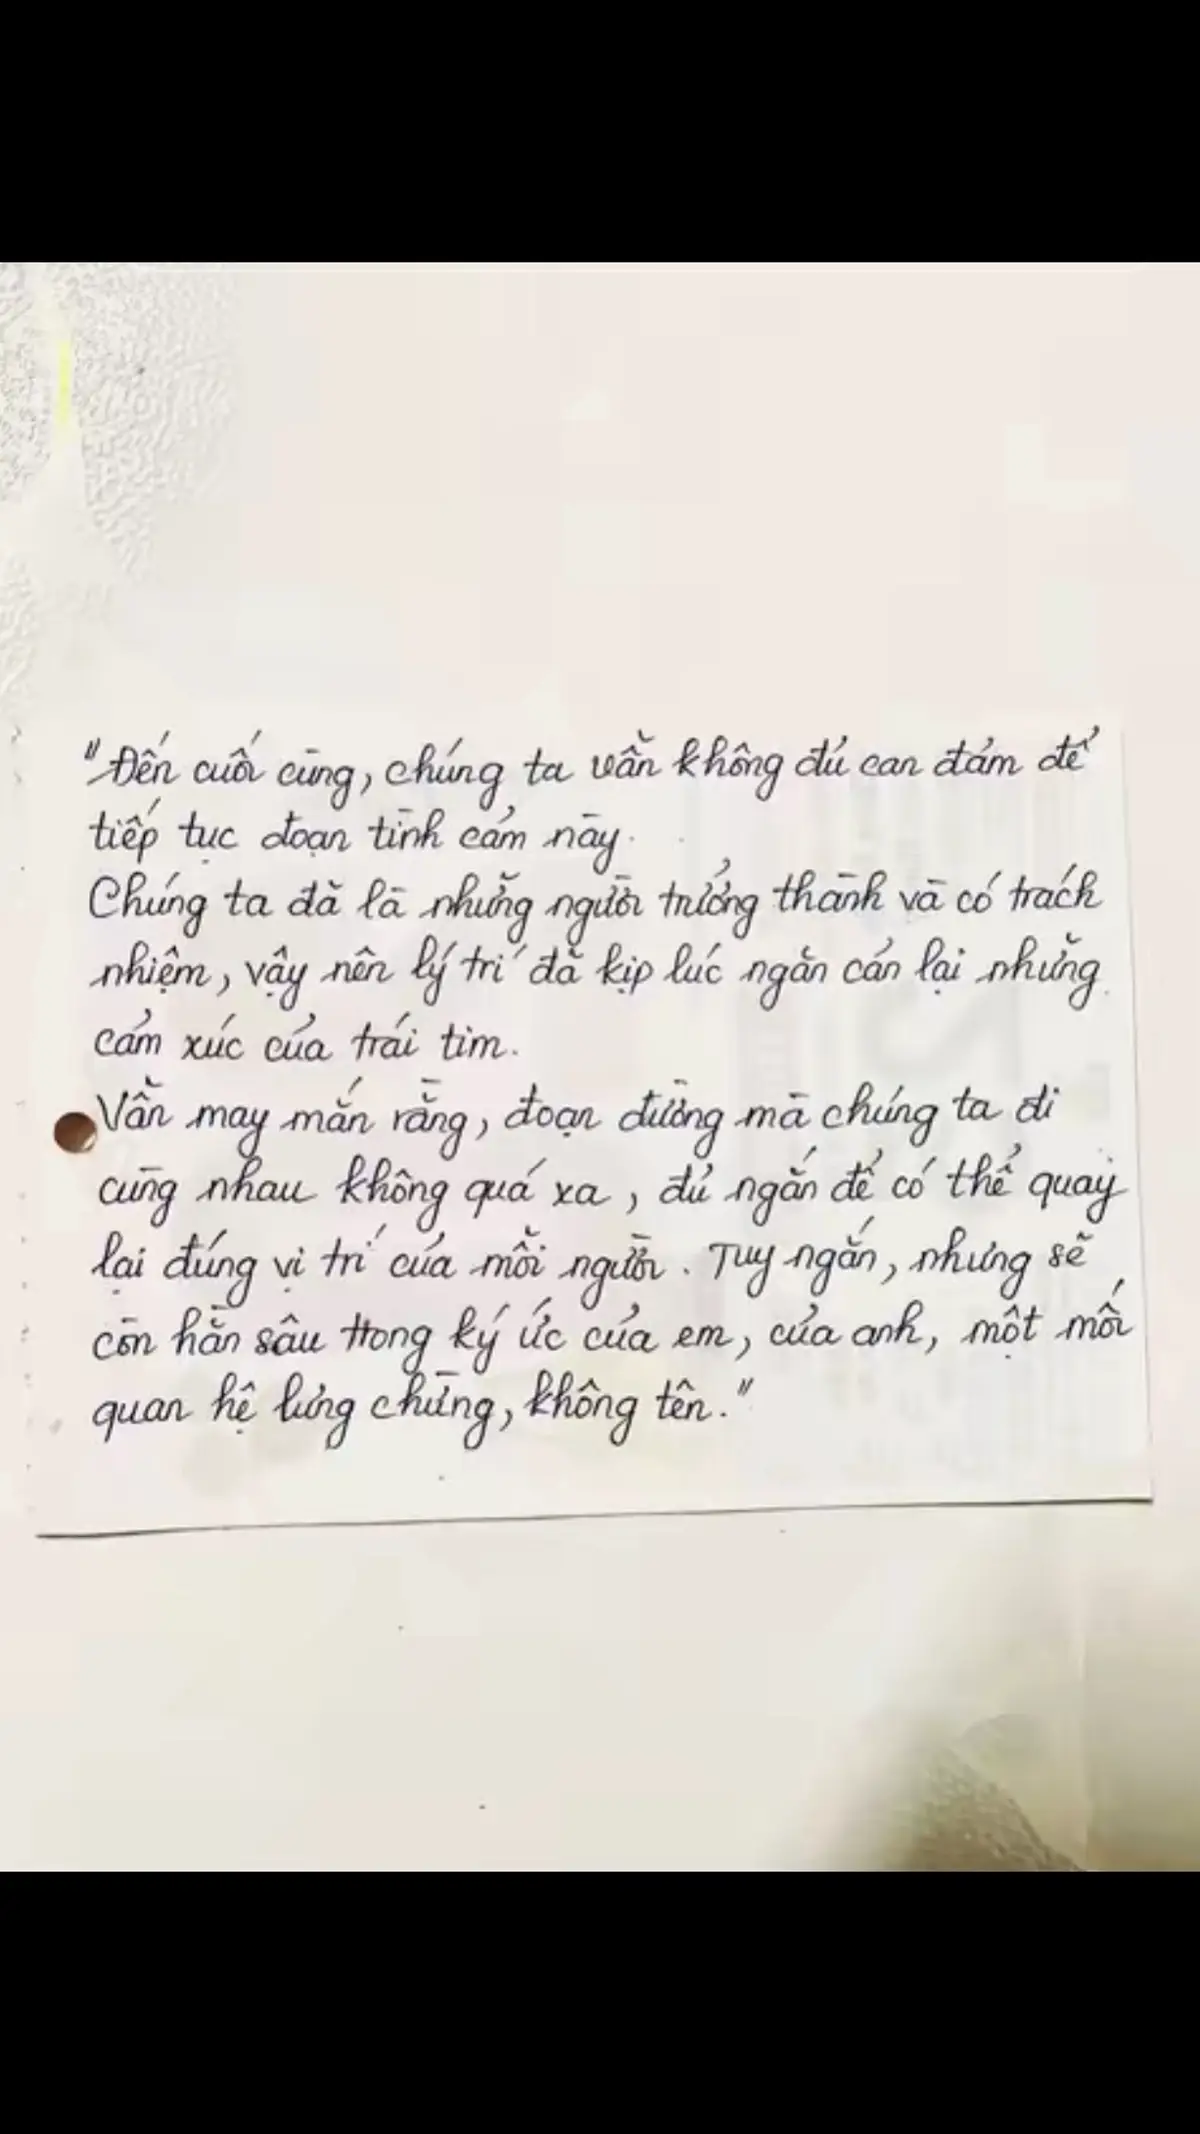 "Đến cuối cùng, chúng ta vẫn không đủ can đảm để
tiếp tục đoạn tình cảm này.
Chúng ta đã là những người trưởng thành và có trách
nhiệm, vậy nên lý trí đã kịp lúc ngăn cản lại những
cảm xúc của trái tim.
Vẫn may mắn rằng, đoạn đường mà chúng ta đi
cùng nhau không quá xa, đủ ngắn để có thể quay
lại đúng vị trí của mỗi người. Tuy ngắn, nhưng sẽ
còn hằn sâu trong ký ức của em, của anh, một mối
quan hệ lưng chừng, không tên."